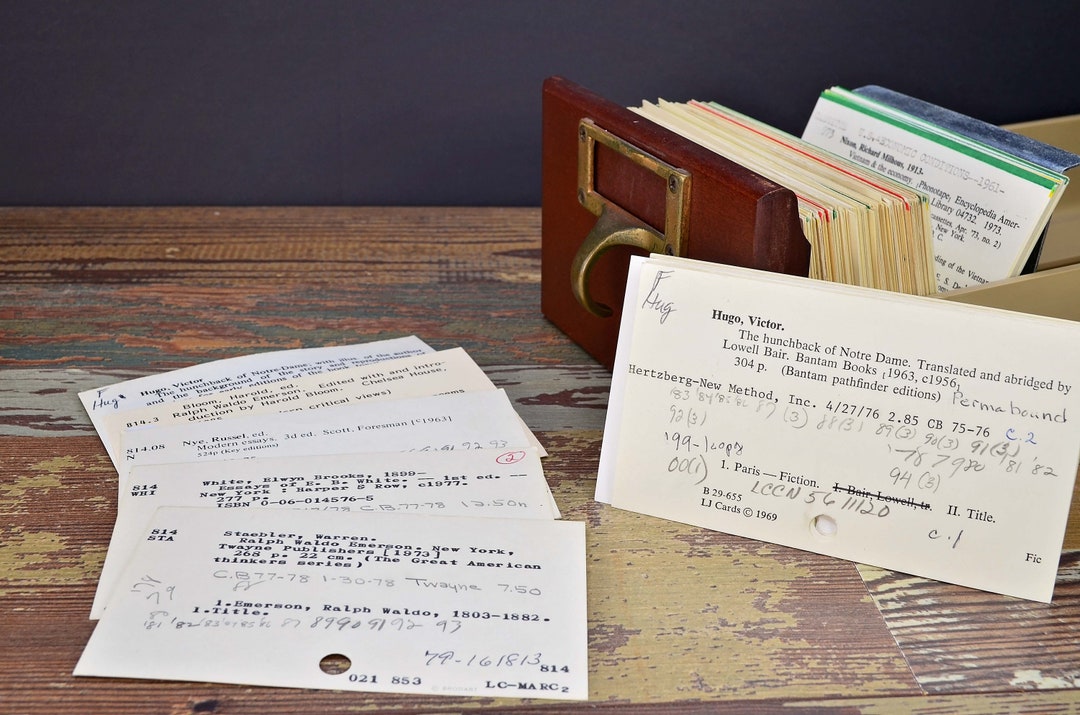 U.S. ECONOMIC CONDITIONS--1961-
1973
Nixon, Richard Milhous, 1913-
Vietnam & the economy. [Phonotape, Encyclopedia Amer-
Library 04732. 1973.
cassettes, Apr. '73, no. 2)
New York.
C.
ding of the Vietnam
F
Hug
Hugo, Victor.
The hunchback of Notre Dame. Translated and abridged by
Lowell Bair. Bantam Books [1963, c1956,
304 p. (Bantam pathfinder editions) Permabound
Hertzberg-New Method, Inc. 4/27/76 2.85 CB 75-76 C.2
'83 '84 '85 '86 87 (3) 88(3) 89(3) 90(3) 91(3)
92(3) '78 79 80 '81 '82
'99-1copy 94 (3)
00(1) 1. Paris — Fiction. 1. Bair, Lowell, tr. II. Title.
B 29-655 LCCN 56 11120
LJ Cards © 1969 c.1
Fic
F
Hug
Hugo, Victor
hunchback of Notre-Dame; with illus. of the author
and the background of the story and reproductions of
editions
814.3
Bloom, Harold, ed.
Ralph Waldo Emerson. Edited with and intro-
duction by Harold Bloom. Chelsea House,
modern critical views)
814.08
Nye, Russel, ed.
Modern essays. 3d ed. Scott, Foresman [c1963]
524p (Key editions)
91 92 93
2
814
WHI
White, Elwyn Brooks, 1899-
Essays of E. B. White. — 1st ed. --
New York : Harper & Row, c1977.
277 p.
ISBN 0-06-014576-5
C.B.77-78 12.50
814
STA
Staebler, Warren.
Ralph Waldo Emerson. New York,
Twayne Publishers [1973]
268 p. 22 cm. (The Great American
thinkers series)
C.B 77-78 1-30-78 Twayne 7.50
'78
79
88
1.Emerson, Ralph Waldo, 1803-1882.
1.Title.
'81 '82 '83 '84 85 86 87 89 90 91 92 93
79-161813
814
021 853 LC-MARC2